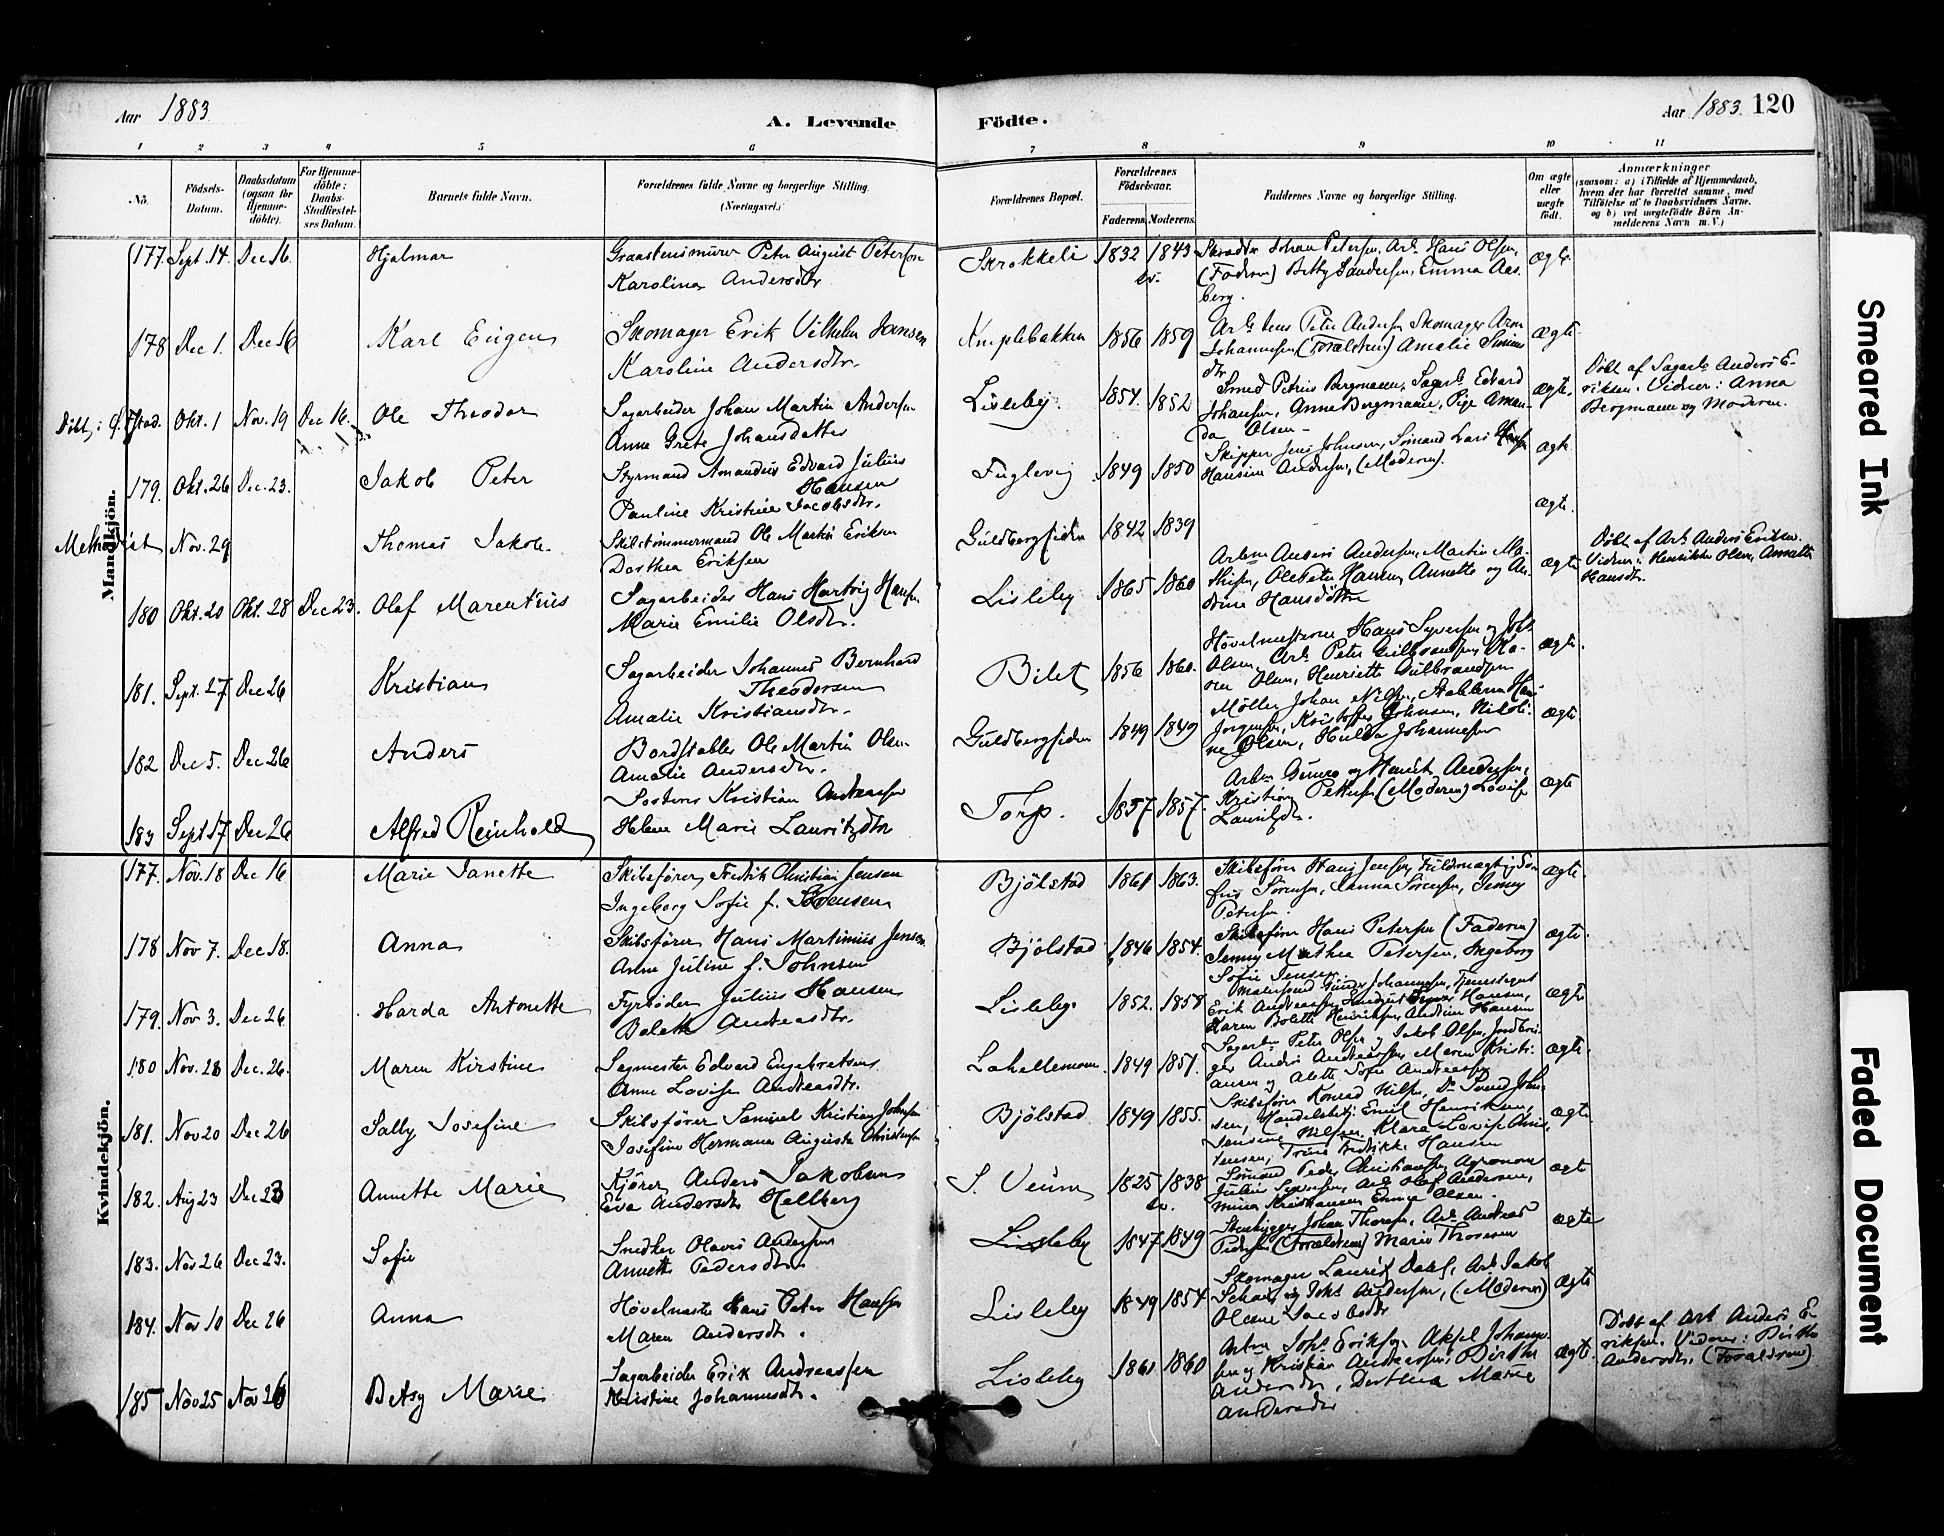 Aar 1883
A. Levende Födte.
Aar 1883. 120
1 2 3 4 5 6 7 8 9 10 11
No.
Födsels-
Datum.
Daabsdatum
(ogsaa for
Hjemme-
döbte).
For Hjemme-
döbte:
Daabs-
Stadfæstel-
ses Datum.
Barnets fulde Navn.
Forældrenes fulde Navne og borgerlige Stilling.
(Næringsvei.)
Forældrenes Bopæl.
Forældrenes
Födselsaar.
Faderens. Moderens.
Faddernes Navne og borgerlige Stilling.
Om ægte
eller
uægte
födt.
Anmærkninger
(saasom: a) i Tilfælde af Hjemmedaab,
hvem der har forrettet samme, med
Tilföielse af to Daabsvidners Navne.
og b) ved uægtefödte Börn An-
melderens Navn m. V.)
Mandkjön.
177. Sept. 14. Dec 16. Hjalmar
Graastensmurer Peter August Peterson
Karolina Andersdtr
Skrokkeli 1832 1843
Skrædder Johan Petersen, Arb. Hans Olsen,
(Faderen) Betty Sandersen, Emma Aas-
berg.
ægte
178 Dec 1. Dec 16 Karl Eugen
Skomager Erik Vilhelm Jansen
Karoline Andersdtr.
Kniplebakken 1856 1859
Arb. Jens Peter Andersen Skomager Aron
Johannesen (Forældrene) Amalie Simens
dtr
ægte
Döbt i Ö. Fstad. Okt. 1 Nov. 19 Dec 16. Ole Theodor
Sagarbeider Johan Martin Andersen
Anne Grete Johansdatter
Lisleby. 1854. 1852
Smed Petrus Bergmann, Sagarb. Edvard
Johansen, Anne Bergmann, Pige Aman-
da Olsen
ægte.
Döbt af Sagarb. Anders E-
riksen. Vidner: Anna
Bergmann og Moderen.
179. Okt. 26 Dec. 23. Jakob Peter
Styrmand Amandus Edvard Julius
Hansen
Pauline Kristine Jacobsdtr.
Fuglevig 1849 1850
Skipper Jens Johnsen, Sömand Lars
Hansine Andersen, (Moderen).
ægte
Methodist Nov. 29 Thomas Jakob
Skibstömmermand Ole Martin Eriksen
Dorthea Eriksen
Guldbergsiden 1842 1839
ægte.
180 Okt. 20 Okt. 28 Dec 23. Olaf Marentius
Sagarbeider Hans Hartvig Hansen
Marie Emilie Olsdtr.
Lisleby 1865 1860
Arbm Anders Andersen, Martin Ma-
thisen, Ole Peter Hansen, Annette og An-
dine Hansdöttre
ægte
Döbt af Arb. Anders Eriksen.
Vidner: Henrikke Olsen, Annette
Hansdtr.
181. Sept. 27 Dec 26 Kristian
Sagarbeider Johannes Bernhard
Theodorsen
Amalie Kristiansdtr.
Bilet 1856 1860.
Hövelmesterne Hans Syversen og Joh.
Olsen, Arb. Peter Gulbrandsen, Ka-
ren Olsen, Henriette Gulbrandsen
ægte.
182 Dec 5. Dec 26 Anders
Bordstabler Ole Martin Olsen
Amalie Andersdtr.
Guldbergsiden 1849 1849
Möller Johan Nilsen, Stablerne Hans
Jörgensen, Kristoffer Johnsen, Nikoli-
ne Olsen, Hulda Johannesen
ægte
183 Sept 17 Dec 26 Alfred Reinhold
Kristian Andreassen
Helene Marie Lauritzdtr
Torp. 1857 1857.
Arbm Gunro og Marit Andersen,
Kristian Pettersen (Moderen) Lovise
Lauritzdr.
ægte
Kvindekjön.
177. Nov. 18 Dec 16 Marie Janette
Skibsförer Fredrik Christian Jensen
Ingeborg Sofie f. Sörensen
Bjölstad 1861 1863.
Skibsförer Hans Jensen, Fuldmægtig So-
fus Sörensen, Janna Sörensen, Jenny
Petersen.
ægte.
178 Nov 7. Dec 18. Anna
Skibsförer Hans Martinius Jensen
Anne Juline f. Johnsen
Bjölstad 1846 1854.
Skibsförer Hans Petersen (Faderen)
Jenny Mathea Petersen, Ingeborg
Sofie Jensen
ægte
179. Nov 3. Dec 26 Harda Antonette
Fyrböder Julius Hansen
Bolette Andreasdtr.
Lisleby 1852. 1858
Erik Andreassen Hansen,
Karen Bolette Henriksen, Andrine Hansen
ægte
180 Nov. 28 Dec. 26. Maren Kirstine
Sagmester Edvard Engebretsen
Anne Lovise Andreasdtr.
Lahellemoen. 1849 1851.
Sagarbm Peter Olsen og Jakob Olsen, Jordbru-
ger Andr. Andreassen, Maren Kristi-
ansen og Alette Sofie Andreassen
ægte.
181. Nov 20 Dec 26 Sally Josefine
Skibsförer Samuel Kristian Johnsen
Josefine Hermana Augusta Christensen
Bjölstad 1849 1855.
Skibsförer Konrad Nilsen, Do Svend John-
sen, Handelsbetj. Emil Henriksen,
Jensine Nilsen, Klara Lovise Chris-
tensen, Trine Fredrikke Hansen
ægte.
182. Aug 23 Dec 23 Annette Marie
Kjörer Anders Jakobsen
Eva Andersdtr Hellberg
S. Veum 1825 1838
Sömand Peder Christiansen, Agronom
Julius Syversen, Arb. Olaf Andersen,
Mina Kristiansen, Emma Olsen.
ægt
183. Nov 26 Dec 23. Sofie
Snedker Olaves Andersen
Annette Pedersdtr.
Lisleby 1847 1849
Stenhugger Johan Thoresen, Arb. Andreas
Pedersen (Forældrene) Marie Thoresen
ægte
184. Nov 10 Dec 26 Anna
Hövelmester Hans Peter Hansen
Maren Andersdtr.
Lisleby 1849 1854
Skomager Laurits Arb Jakob
og Johs Andersen, (Moderen)
Olene Jacobsdtr
ægte
185 Nov 25 Nov 26 Betsy Marie
Sagarbeider Erik Andreassen
Kristine Johannesdtr.
Lisleby 1861 1860
Arbm Johs Eriksen, Aksel Johans-
sen og Kristian Andreassen, Birthe
Andersdtr, Dorthea Marie
Andersdtr
ægte.
Döbt af Arb Anders E-
riksen. Vidner: Birthe
Andersdtr. (Forældrene)
Smeared Ink
Faded Document